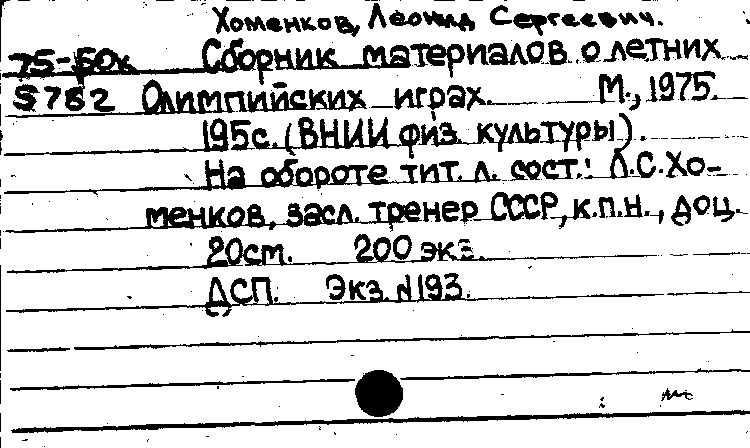 Хоменков, Леонид Сергеевич.
75-50к Сборник материалов о летних
S782 Олимпийских играх. М., 1975.
195с. (ВНИИ физ. культуры).
На обороте тит. л. сост.: Л.С.Хо-
менков, засл. тренер СССР, к.п.н., доц.
20см. 200 экз.
ДСП. Экз. №193.